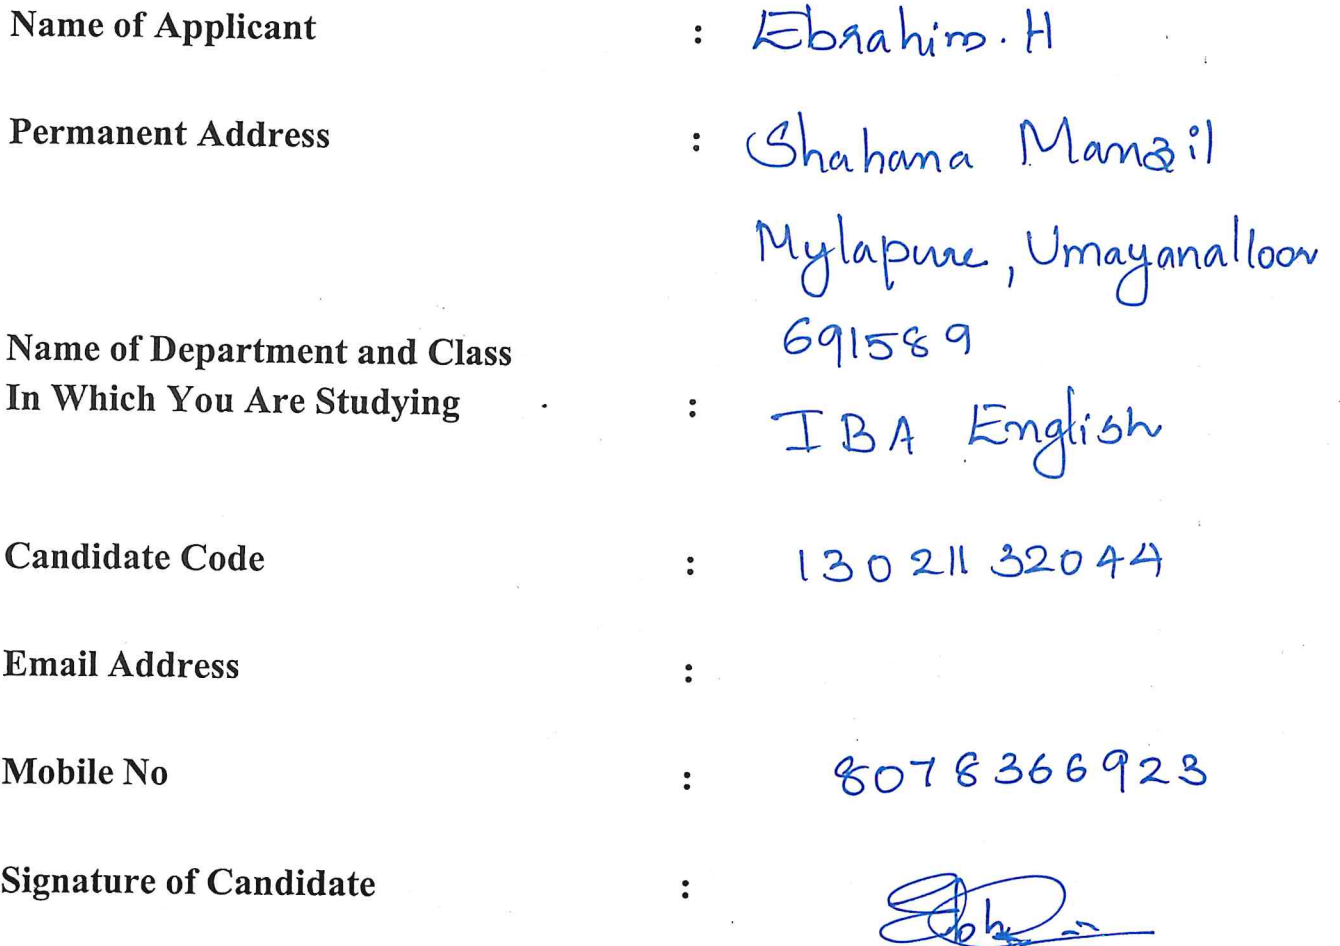 Name of Applicant : Ebrahim. H
Permanent Address : Shahana Manzil
Mylapure, Umayanalloor
691589
Name of Department and Class
In Which You Are Studying : I BA English
Candidate Code : 13021132044
Email Address :
Mobile No : 8078366923
Signature of Candidate :